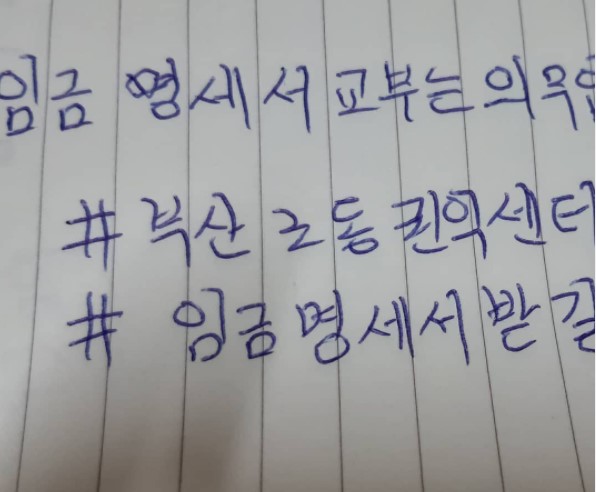 임금 명세서 교부는 의무
# 부산 노동 권익센터
# 임금 명세서 받